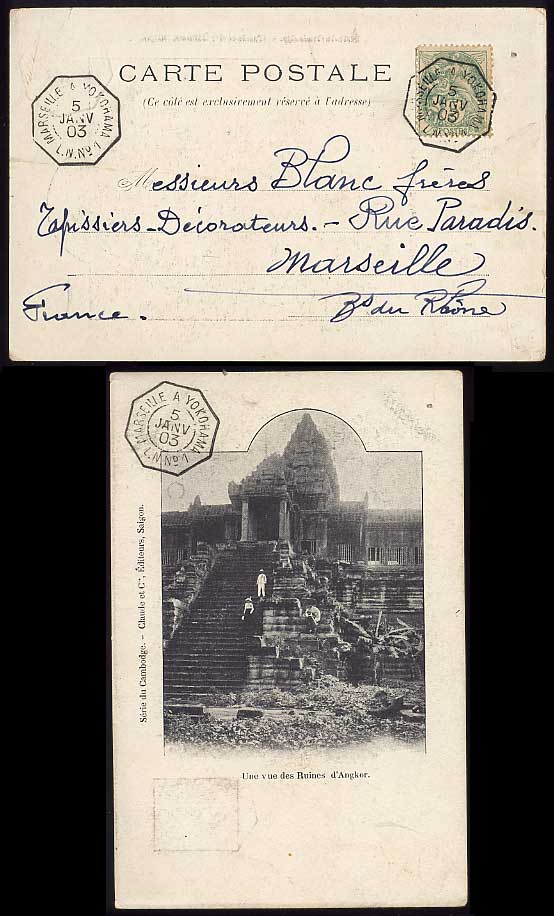 CARTE POSTALE
(Ce côté est exclusivement réservé à l'adresse)
MARSEILLE A YOKOHAMA
5
JANV
03
L.N. Nº1
MARSEILLE A YOKOHAMA
5
JANV
03
Messieurs Blanc frères
Tapissiers-Décorateurs. - Rue Paradis.
Marseille
France.
Bs du Rhône
MARSEILLE A YOKOHAMA
5
JANV
03
L.N. Nº1
Série du Cambodge. - Claude et Cie, Éditeurs, Saigon.
Une vue des Ruines d'Angkor.